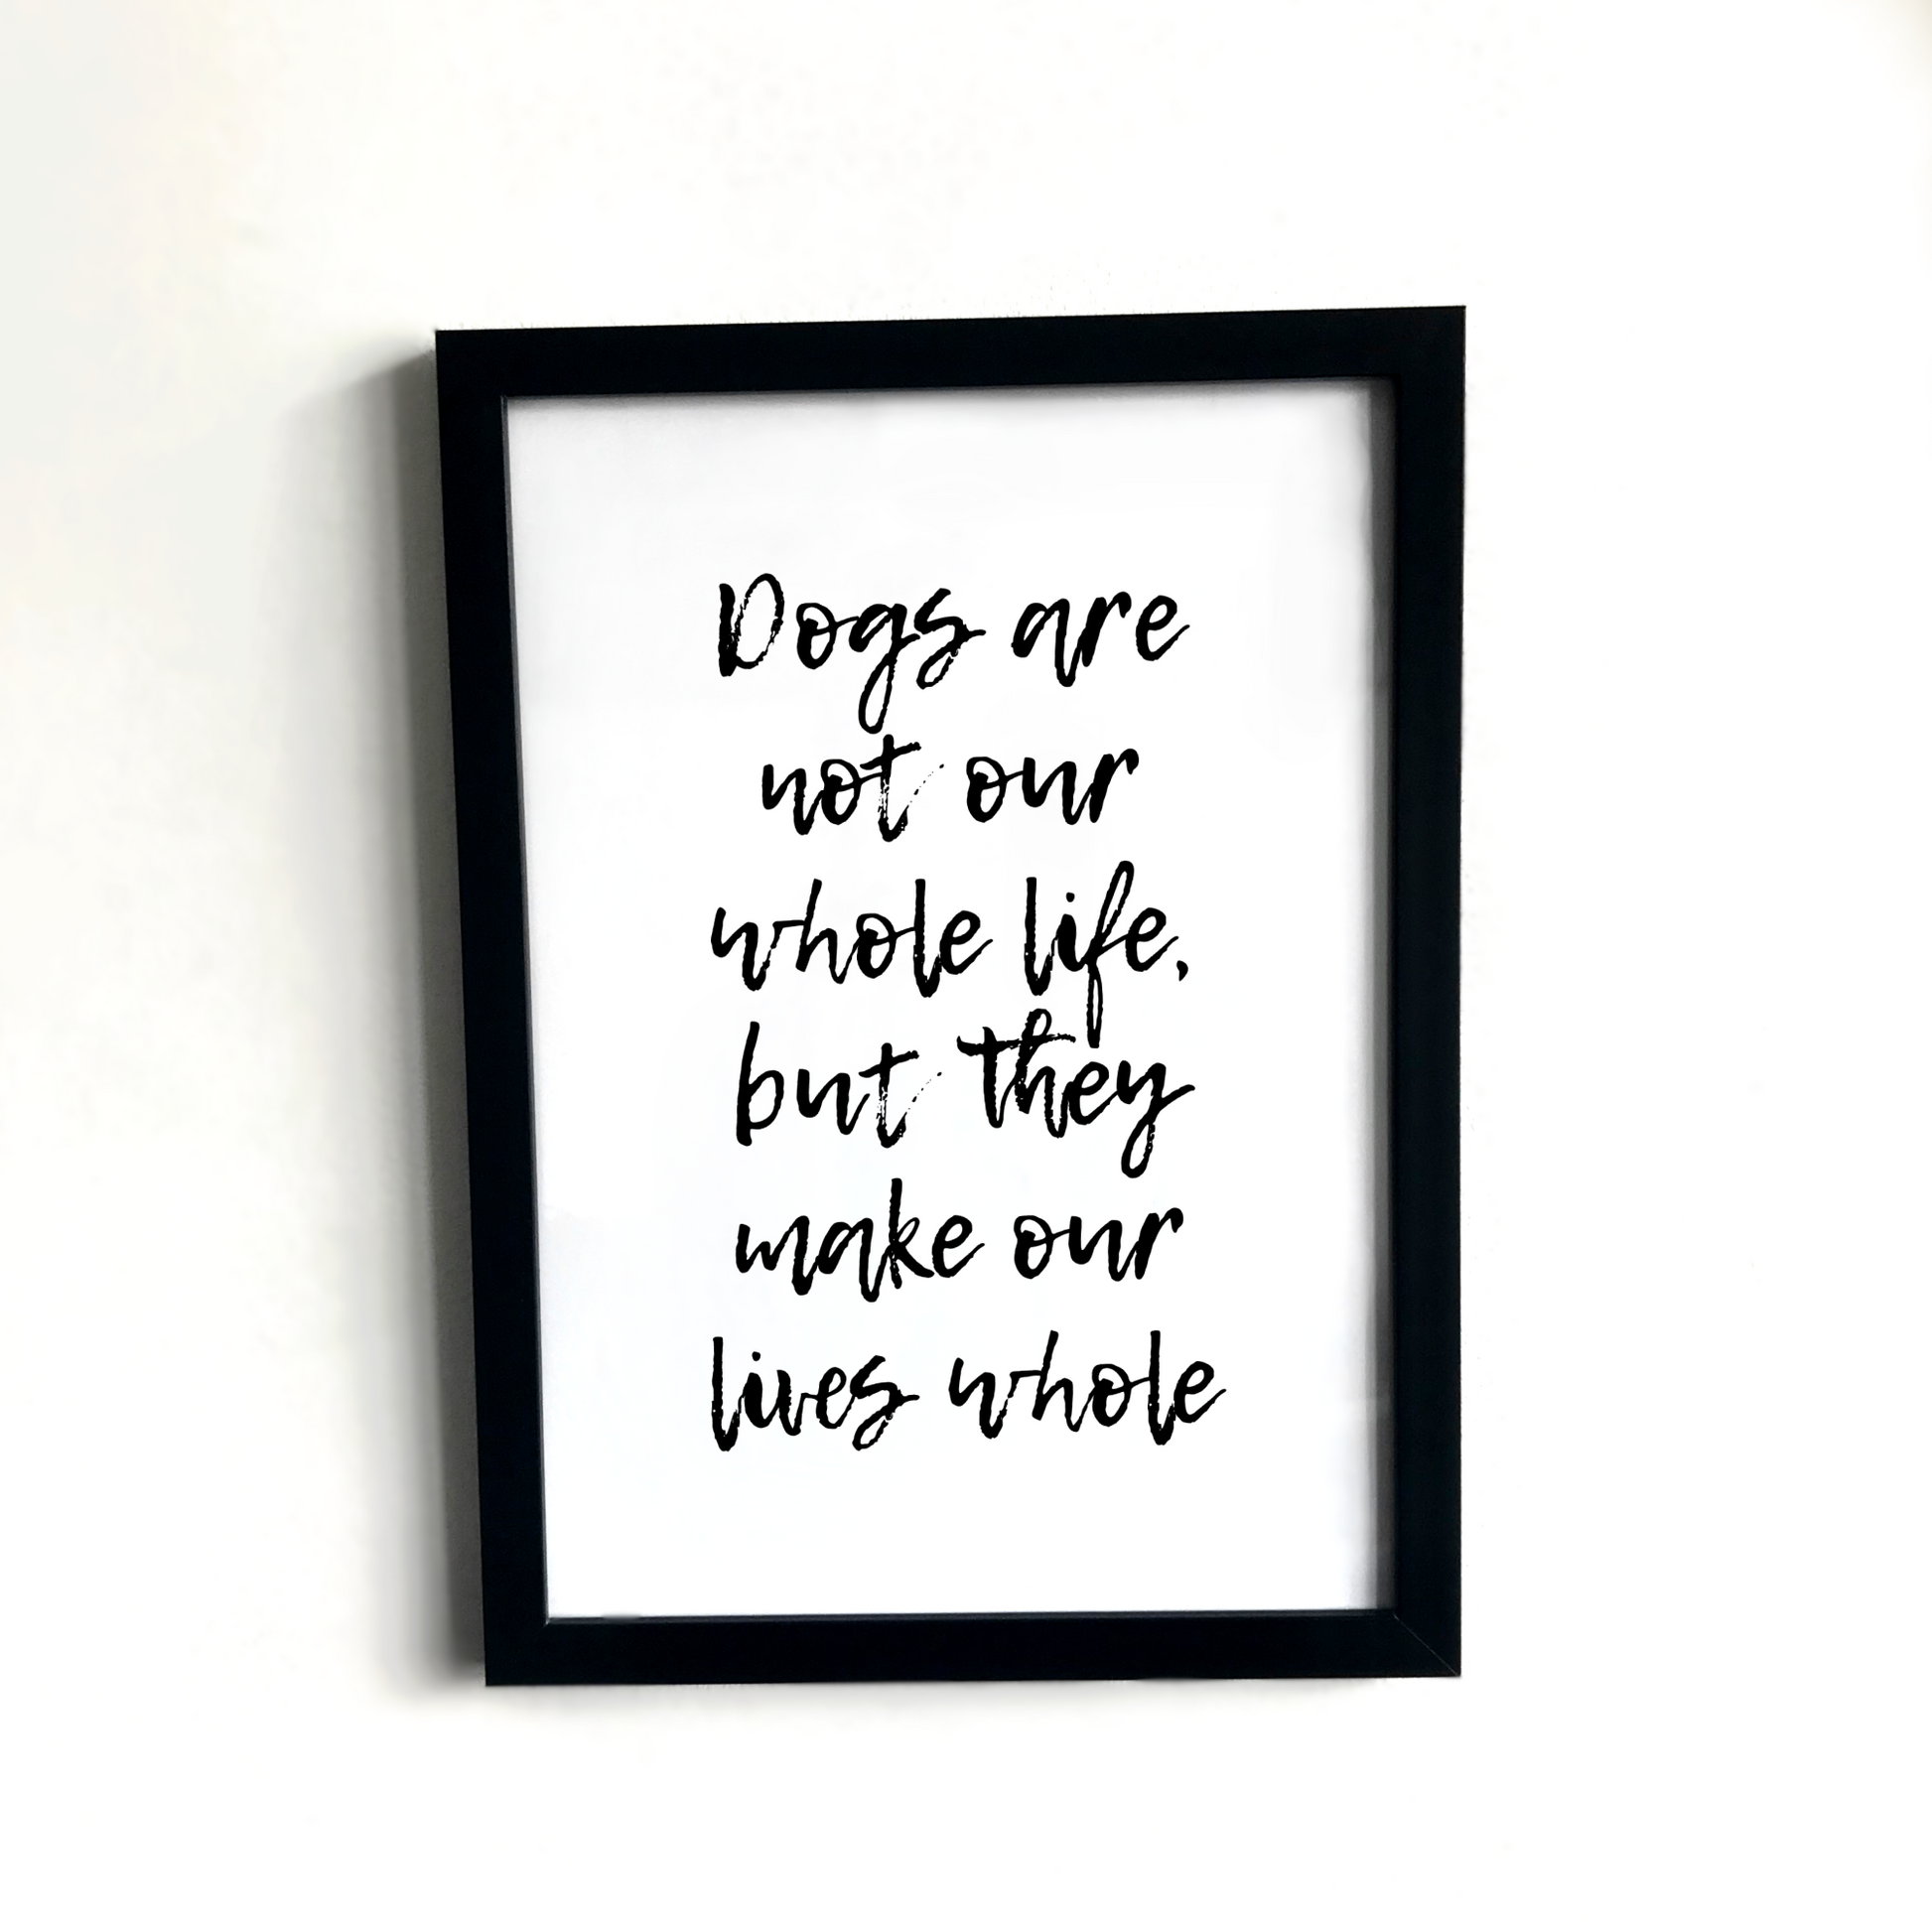 Dogs are
not our
whole life,
but they
make our
lives whole